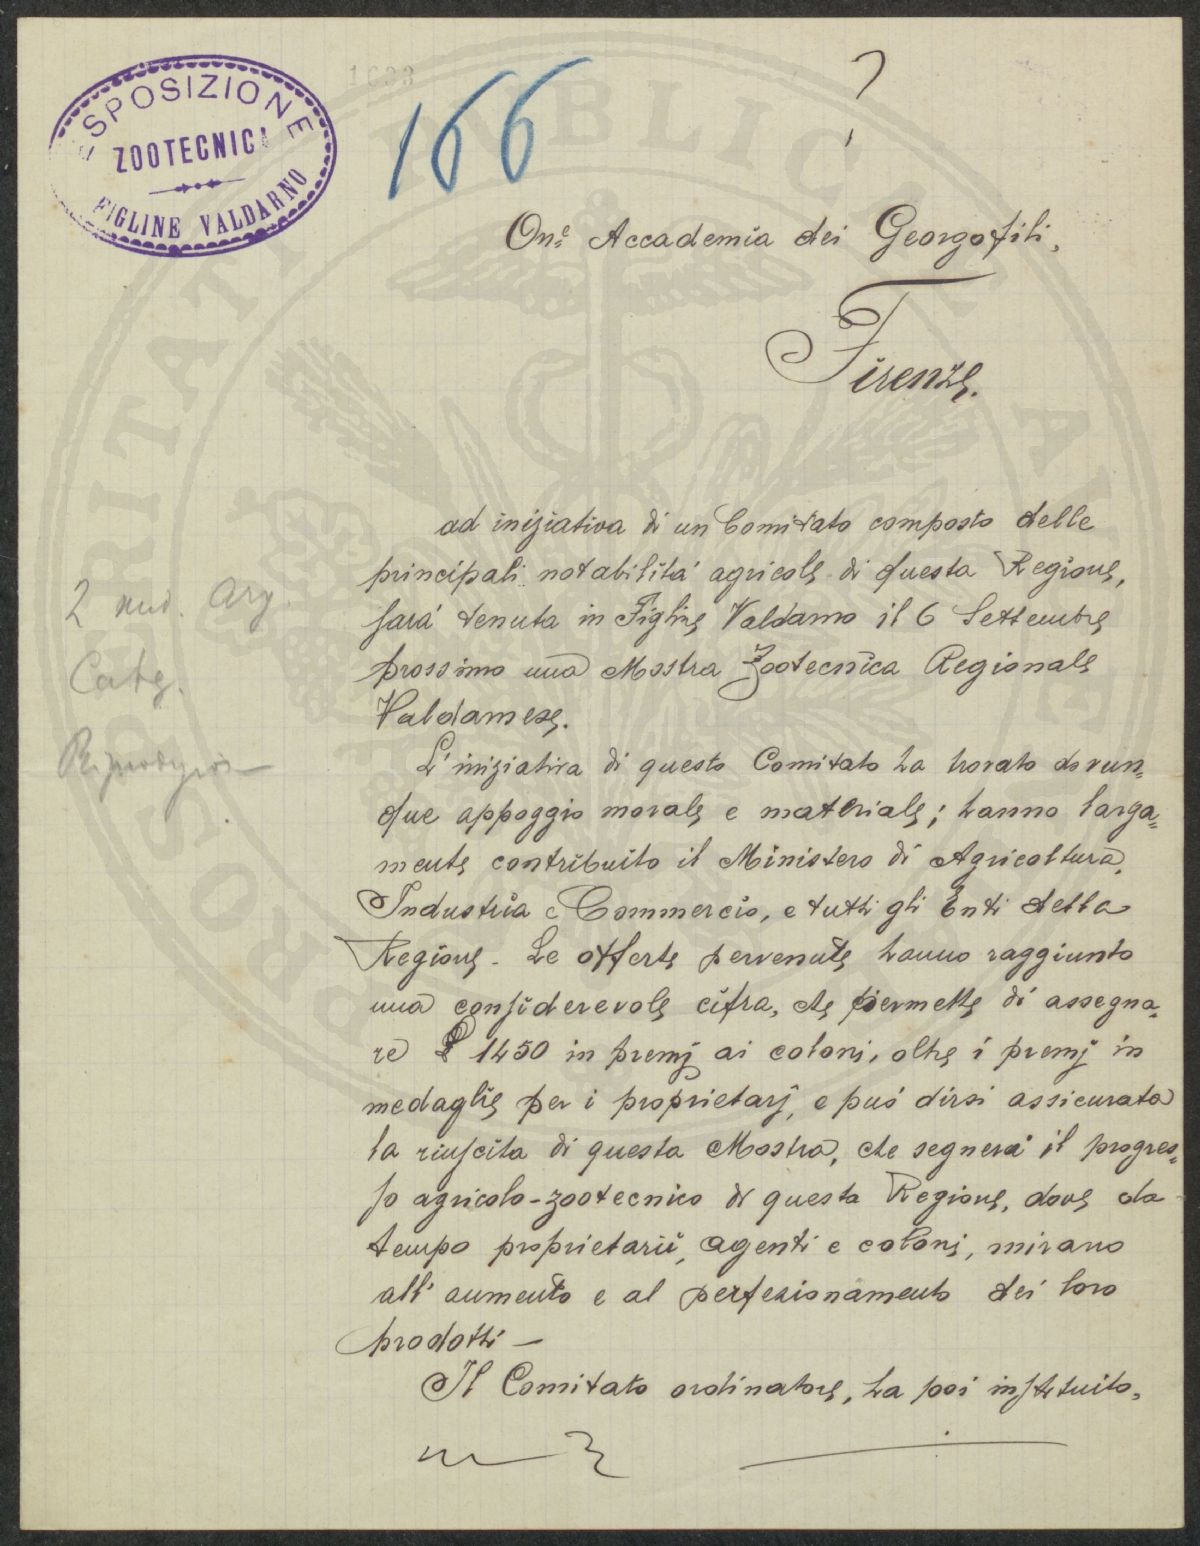 ESPOSIZIONE
ZOOTECNICA
FIGLINE VALDARNO
1633
166
?
On.e Accademia dei Georgofili,
Firenze.
ad iniziativa di un Comitato composto delle
principali notabilità agricole di questa Regione,
sarà tenuta in Figline Valdarno il 6 Settembre
prossimo una Mostra Zootecnica Regionale
Valdarnese.
L'iniziativa di questo Comitato ha trovato dovun=
que appoggio morale e materiale; hanno larga=
mente contribuito il Ministero di Agricoltura,
Industria e Commercio, e tutti gli Enti della
Regione. Le offerte pervenute hanno raggiunto
una considerevole cifra, che permette di assegna=
re £ 1450 in premj ai coloni, oltre i premj in
medaglie per i proprietarj, e può dirsi assicurata
la riuscita di questa Mostra, che segnerà il progres=
so agricolo-zootecnico di questa Regione, dove da
tempo proprietarii, agenti e coloni, mirano
all'aumento e al perfezionamento dei loro
prodotti —
Il Comitato ordinatore, ha poi instituito,
2 med. Arg.
Catg.
ACCADEMIA PUBLICA